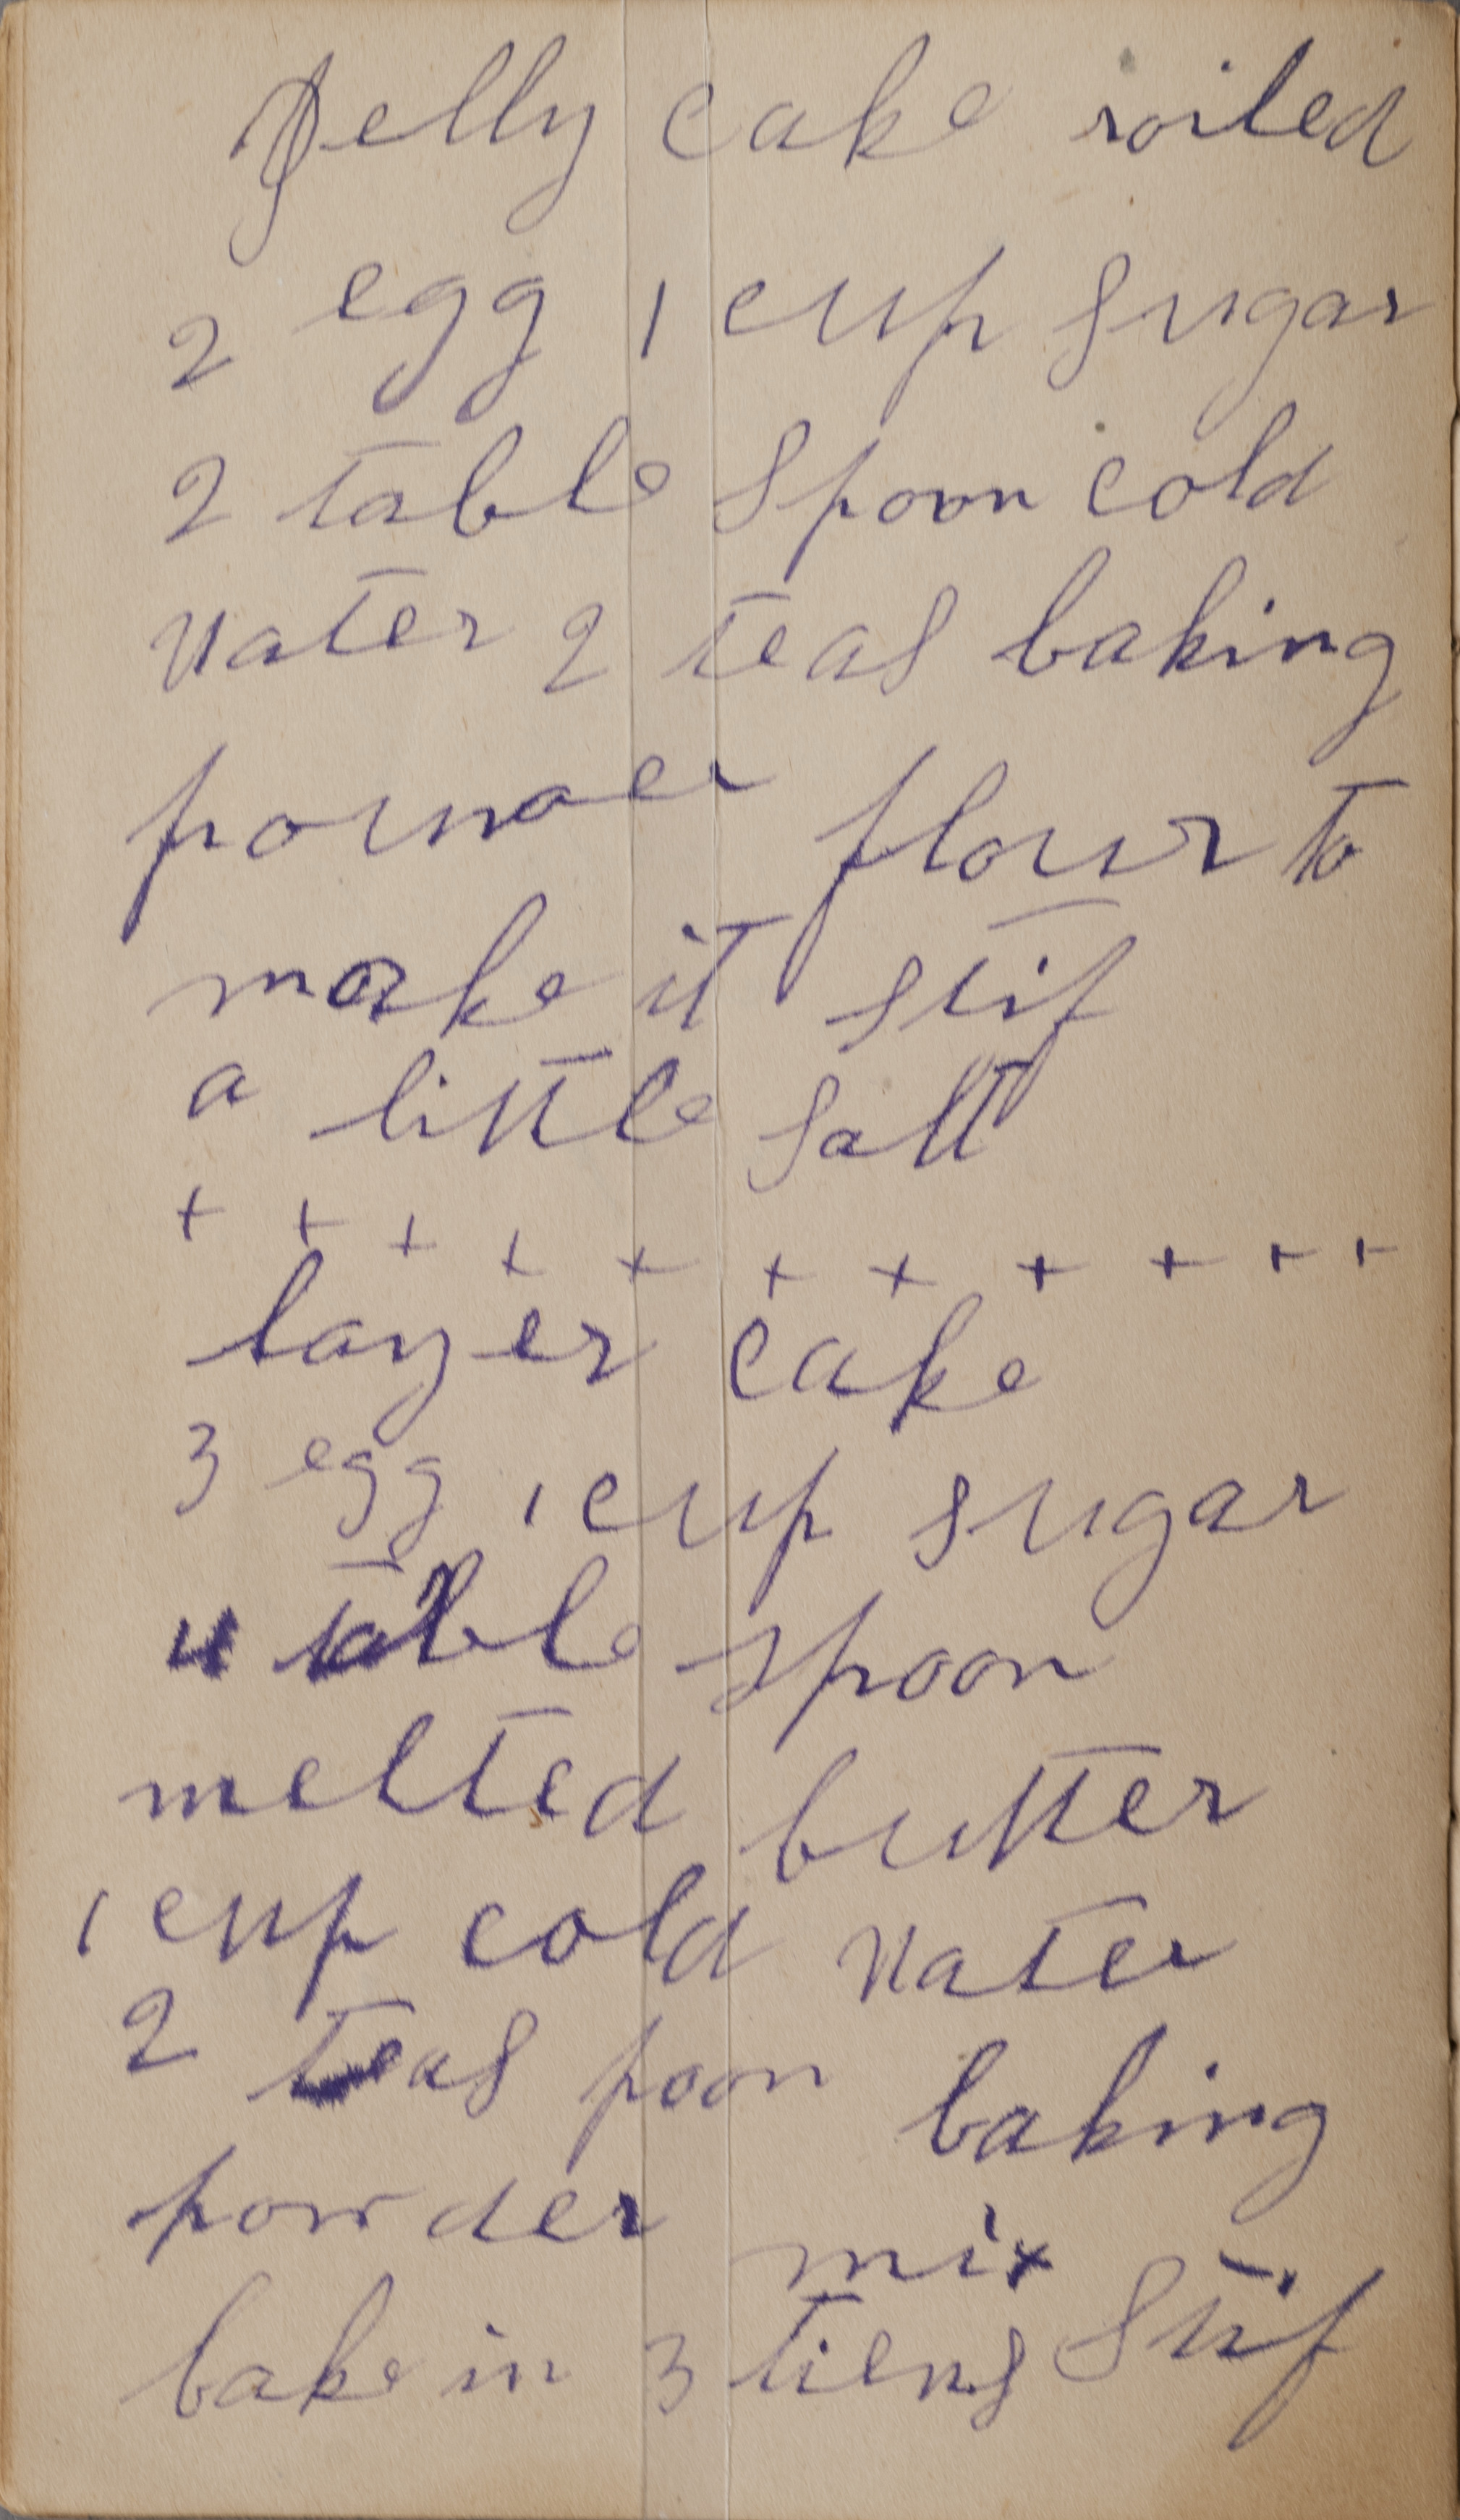 Jelly cake roiled
2 egg 1 cup sugar
2 table spoon cold
water 2 teas baking
powder flour to
make it stif
a little salt
+ + + + + + + + + + +
layer cake
3 egg 1 cup sugar
4 table spoon
melted butter
1 cup cold water
2 teas poon baking
powder mix stif
bake in 3 tiens